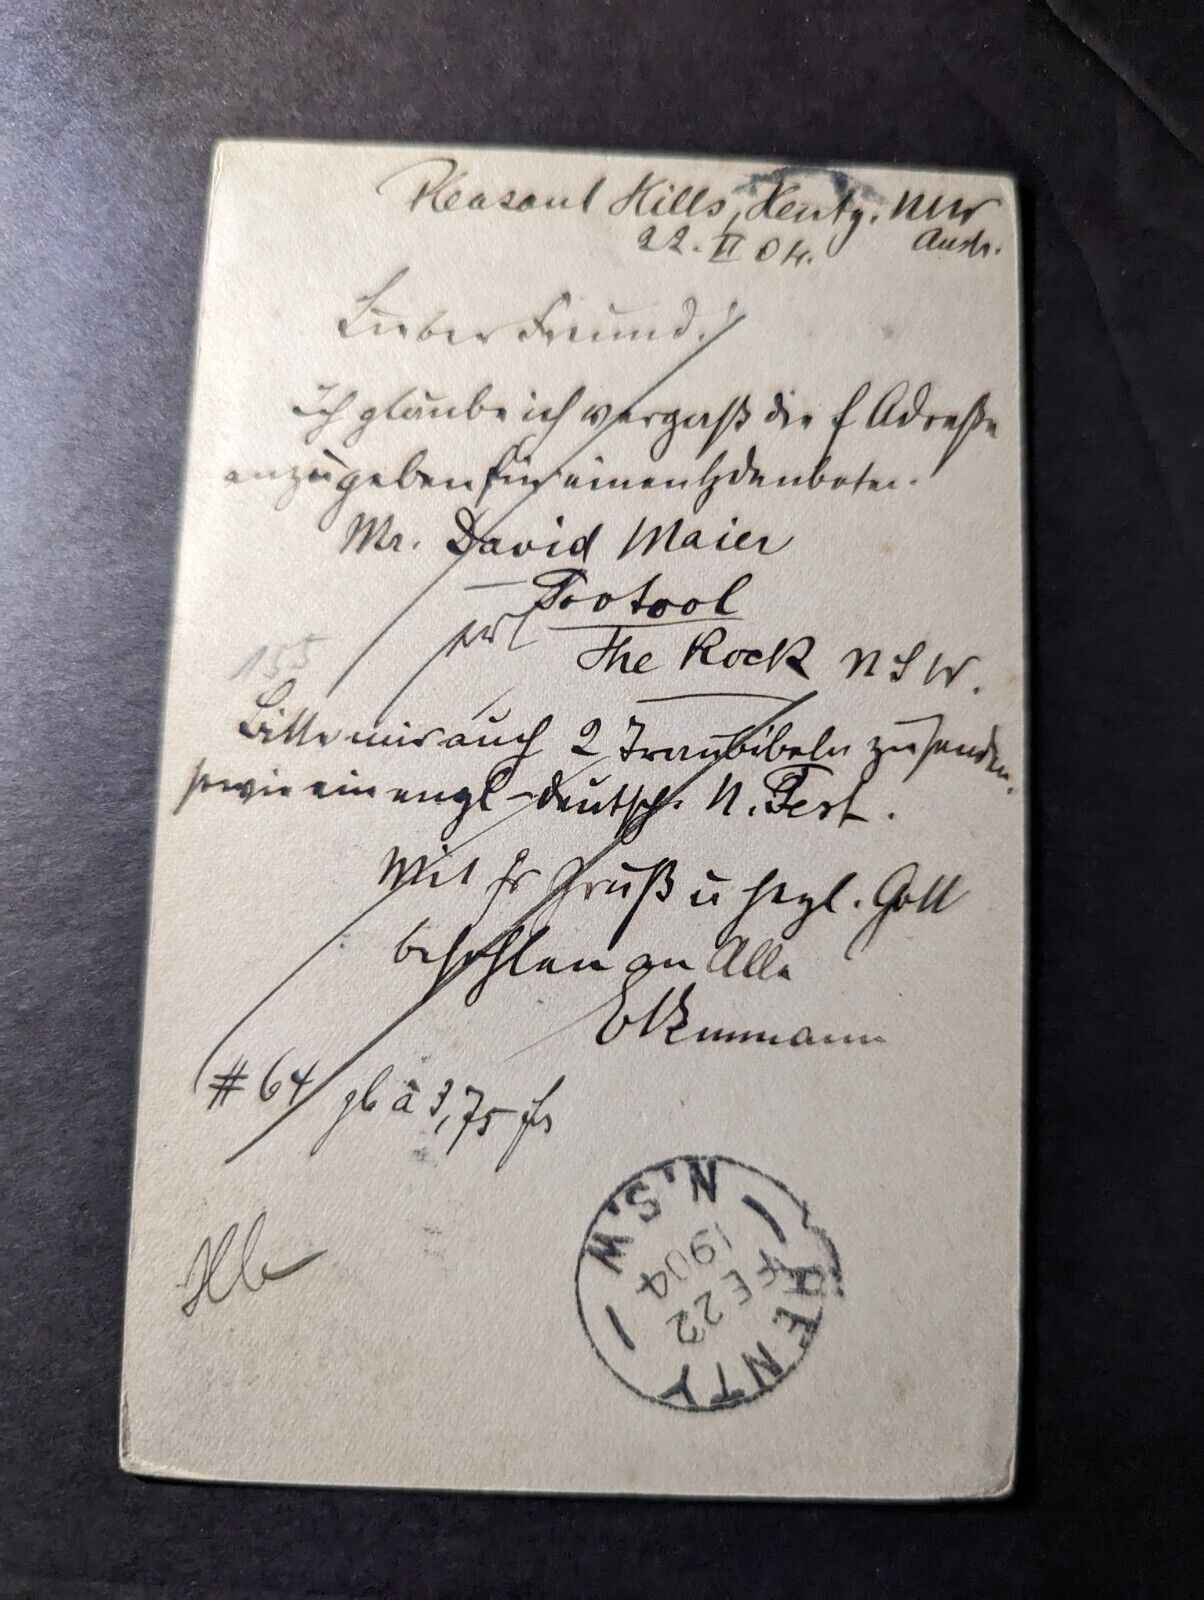 Pleasant Hills, Henty. NSW
Austr.
22. II 04.
Lieber Freund!
Ich glaube ich vergaß die Adreße
anzugeben für einen Friedensboten.
Mr. David Maier
Tootool
The Rock NSW.
155
Bitte mir auch 2 Traubibeln zu senden
sowie ein engl-deutsch. N. Test.
Mit Gruß u Gott
befohlen an Alle
#64 à 3,75
N.S.W
HENTY
FE 22
1904